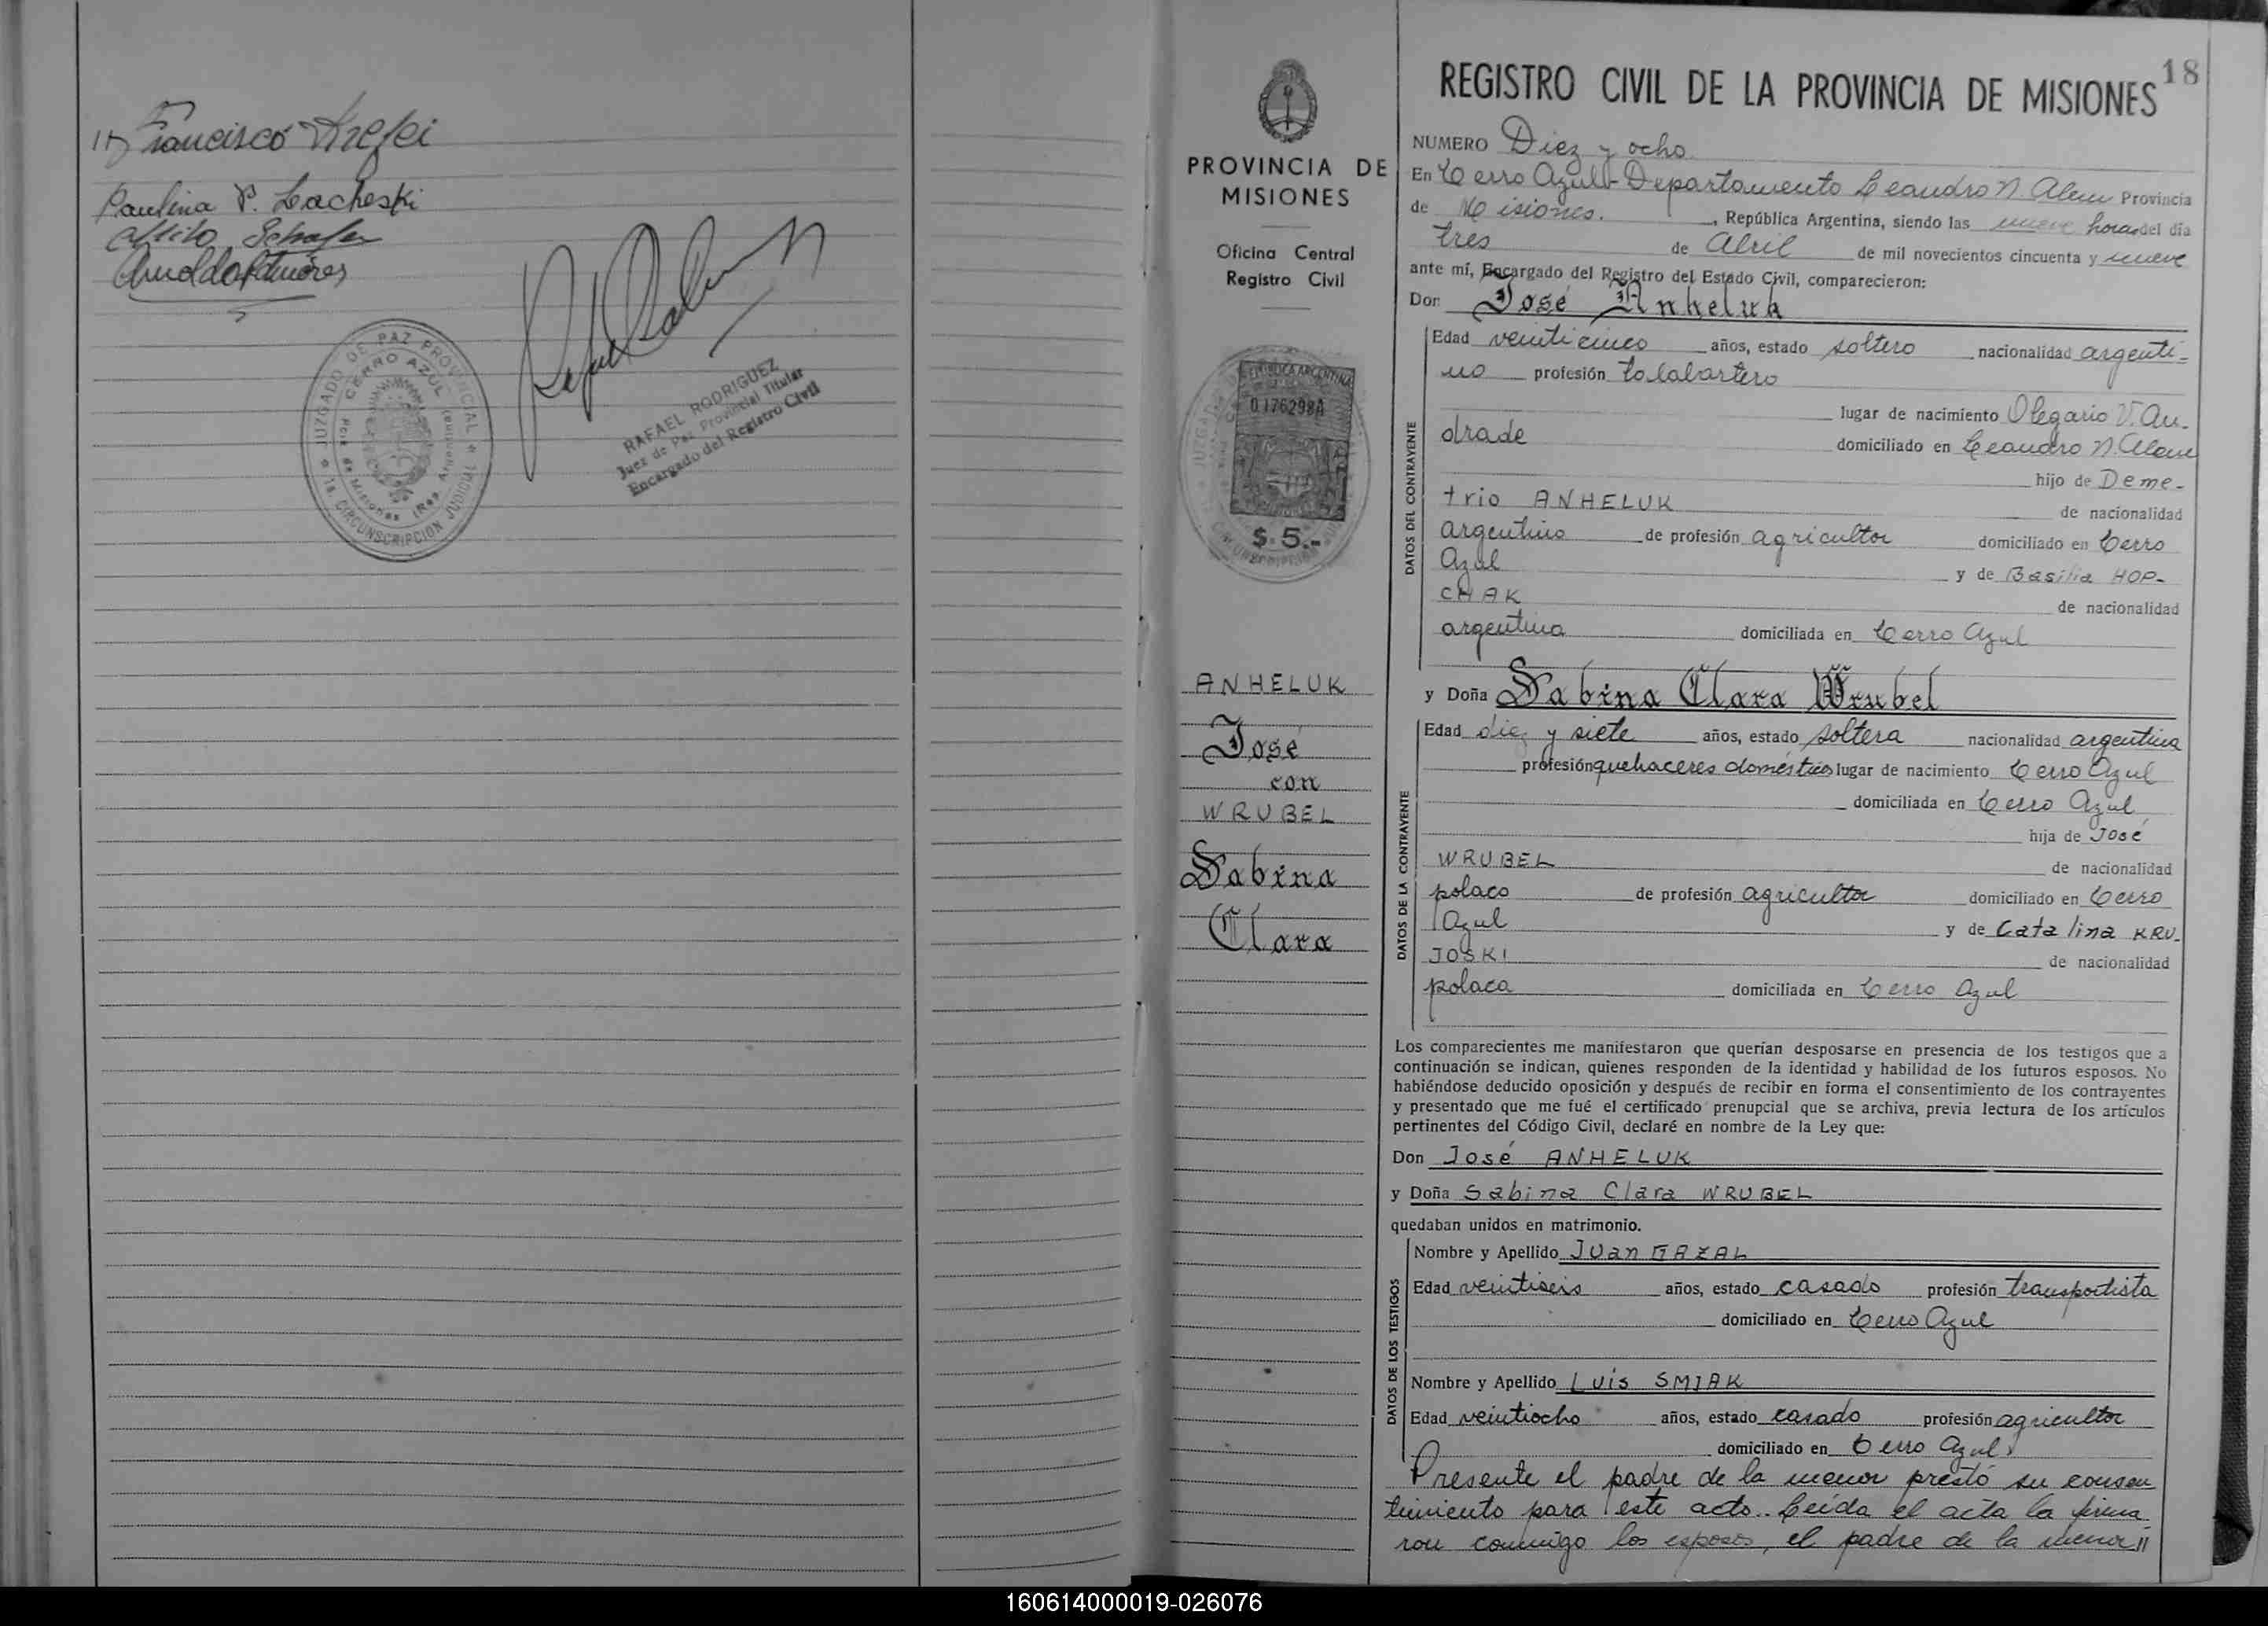 Francisco
Paulina P. Lacheski
Schafer
JUZGADO DE PAZ PROVINCIAL
CERRO AZUL
Pcia. de Misiones (Rep. Argentina)
1a. CIRCUNSCRIPCION JUDICIAL
RAFAEL RODRIGUEZ
Juez de Paz Provincial Titular
Encargado del Registro Civil
PROVINCIA DE
MISIONES
Oficina Central
Registro Civil
REPUBLICA ARGENTINA
0176298A
$ 5.-
ANHELUK
José
con
WRUBEL
Sabina
Clara
18
REGISTRO CIVIL DE LA PROVINCIA DE MISIONES
NUMERO Diez y ocho
En Cerro Azul - Departamento Leandro N. Alem Provincia
de Misiones. , República Argentina, siendo las nueve horas del día
tres de Abril de mil novecientos cincuenta y nueve
ante mí, Encargado del Registro del Estado Civil, comparecieron:
Don José Anheluk
DATOS DEL CONTRAYENTE
Edad veinticinco años, estado soltero nacionalidad argenti-
no profesión talabartero
lugar de nacimiento Olegario V. An-
drade domiciliado en Leandro N. Alem
hijo de Deme-
trio ANHELUK de nacionalidad
argentino de profesión agricultor domiciliado en Cerro
Azul y de Basilia HOP-
CHAK de nacionalidad
argentina domiciliada en Cerro Azul
y Doña Sabina Clara Wrubel
DATOS DE LA CONTRAYENTE
Edad diez y siete años, estado soltera nacionalidad argentina
profesión quehaceres domésticos lugar de nacimiento Cerro Azul
domiciliada en Cerro Azul
hija de José
WRUBEL de nacionalidad
polaco de profesión agricultor domiciliado en Cerro
Azul y de Catalina KRU-
JOSKI de nacionalidad
polaca domiciliada en Cerro Azul
Los comparecientes me manifestaron que querían desposarse en presencia de los testigos que a
continuación se indican, quienes responden de la identidad y habilidad de los futuros esposos. No
habiéndose deducido oposición y después de recibir en forma el consentimiento de los contrayentes
y presentado que me fué el certificado prenupcial que se archiva, previa lectura de los artículos
pertinentes del Código Civil, declaré en nombre de la Ley que:
Don José ANHELUK
y Doña Sabina Clara WRUBEL
quedaban unidos en matrimonio.
DATOS DE LOS TESTIGOS
Nombre y Apellido Juan GAZAL
Edad veintiseis años, estado casado profesión transportista
domiciliado en Cerro Azul
Nombre y Apellido Luis SMIAK
Edad veintiocho años, estado casado profesión agricultor
domiciliado en Cerro Azul.
Presente el padre de la menor prestó su consen
timiento para este acto.. Leída el acta la firma
ron conmigo los esposos, el padre de la menor //
160614000019-026076